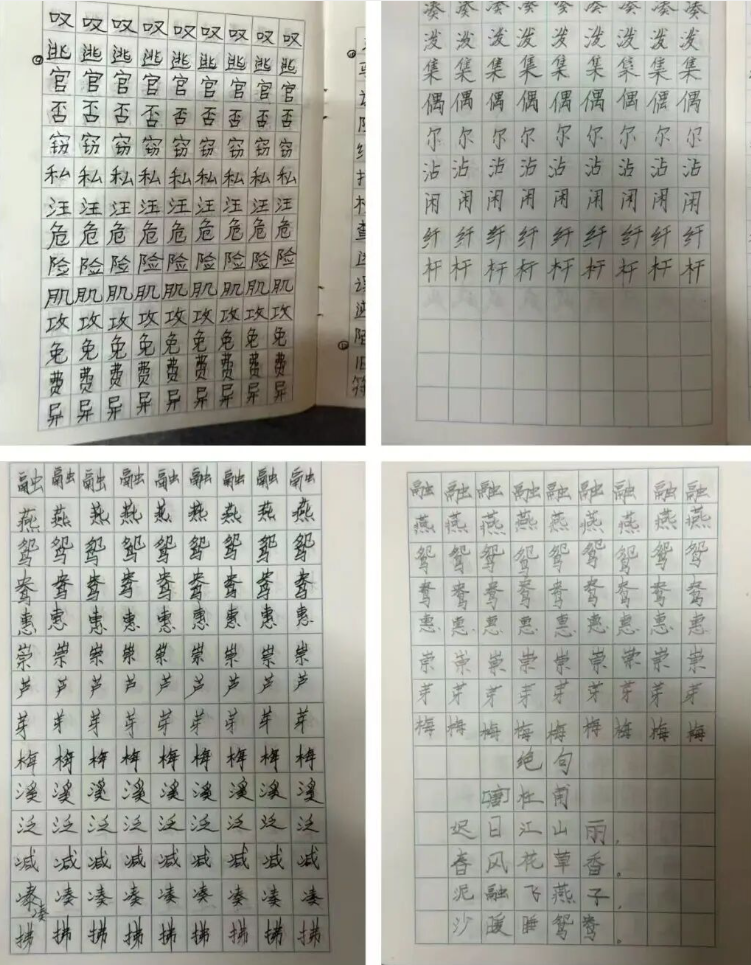 叹叹叹叹叹叹叹叹叹
逃逃逃逃逃逃逃逃逃
官官官官官官官官官
否否否否否否否否否
窃窃窃窃窃窃窃窃窃
私私私私私私私私私
汪汪汪汪汪汪汪汪汪
危危危危危危危危危
险险险险险险险险险
肌肌肌肌肌肌肌肌肌
攻攻攻攻攻攻攻攻攻
免免免免免免免免免
费费费费费费费费费
异异异异异异异异异
凑凑凑凑凑凑凑凑凑
泼泼泼泼泼泼泼泼泼
集集集集集集集集集
偶偶偶偶偶偶偶偶偶
尔尔尔尔尔尔尔尔尔
沾沾沾沾沾沾沾沾沾
闲闲闲闲闲闲闲闲闲
纤纤纤纤纤纤纤纤纤
杆杆杆杆杆杆杆杆杆
融融融融融融融融融
燕燕燕燕燕燕燕燕燕
鸳鸳鸳鸳鸳鸳鸳鸳鸳
鸯鸯鸯鸯鸯鸯鸯鸯鸯
惠惠惠惠惠惠惠惠惠
崇崇崇崇崇崇崇崇崇
芦芦芦芦芦芦芦芦芦
芽芽芽芽芽芽芽芽芽
梅梅梅梅梅梅梅梅梅
溪溪溪溪溪溪溪溪溪
泛泛泛泛泛泛泛泛泛
减减减减减减减减减
凑凑凑凑凑凑凑凑凑
拂拂拂拂拂拂拂拂拂
融融融融融融融融融
燕燕燕燕燕燕燕燕燕
鸳鸳鸳鸳鸳鸳鸳鸳鸳
鸯鸯鸯鸯鸯鸯鸯鸯鸯
惠惠惠惠惠惠惠惠惠
崇崇崇崇崇崇崇崇崇
芽芽芽芽芽芽芽芽芽
梅梅梅梅梅梅梅梅梅
绝句
[唐]杜甫
迟日江山丽,
春风花草香。
泥融飞燕子,
沙暖睡鸳鸯。